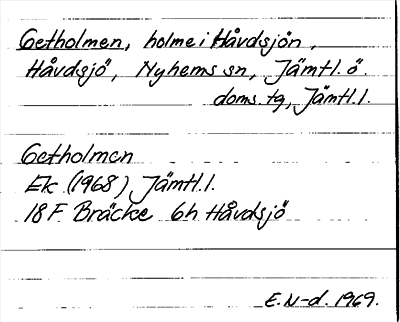 Getholmen, holme i Håvdsjön,
Håvdsjö, Nyhems sn, Jämtl. ö.
doms. tg, Jämtl. l.
Getholmen
Ek (1968) Jämtl. l.
18F Bräcke 6h Håvdsjö
E. N-d. 1969.